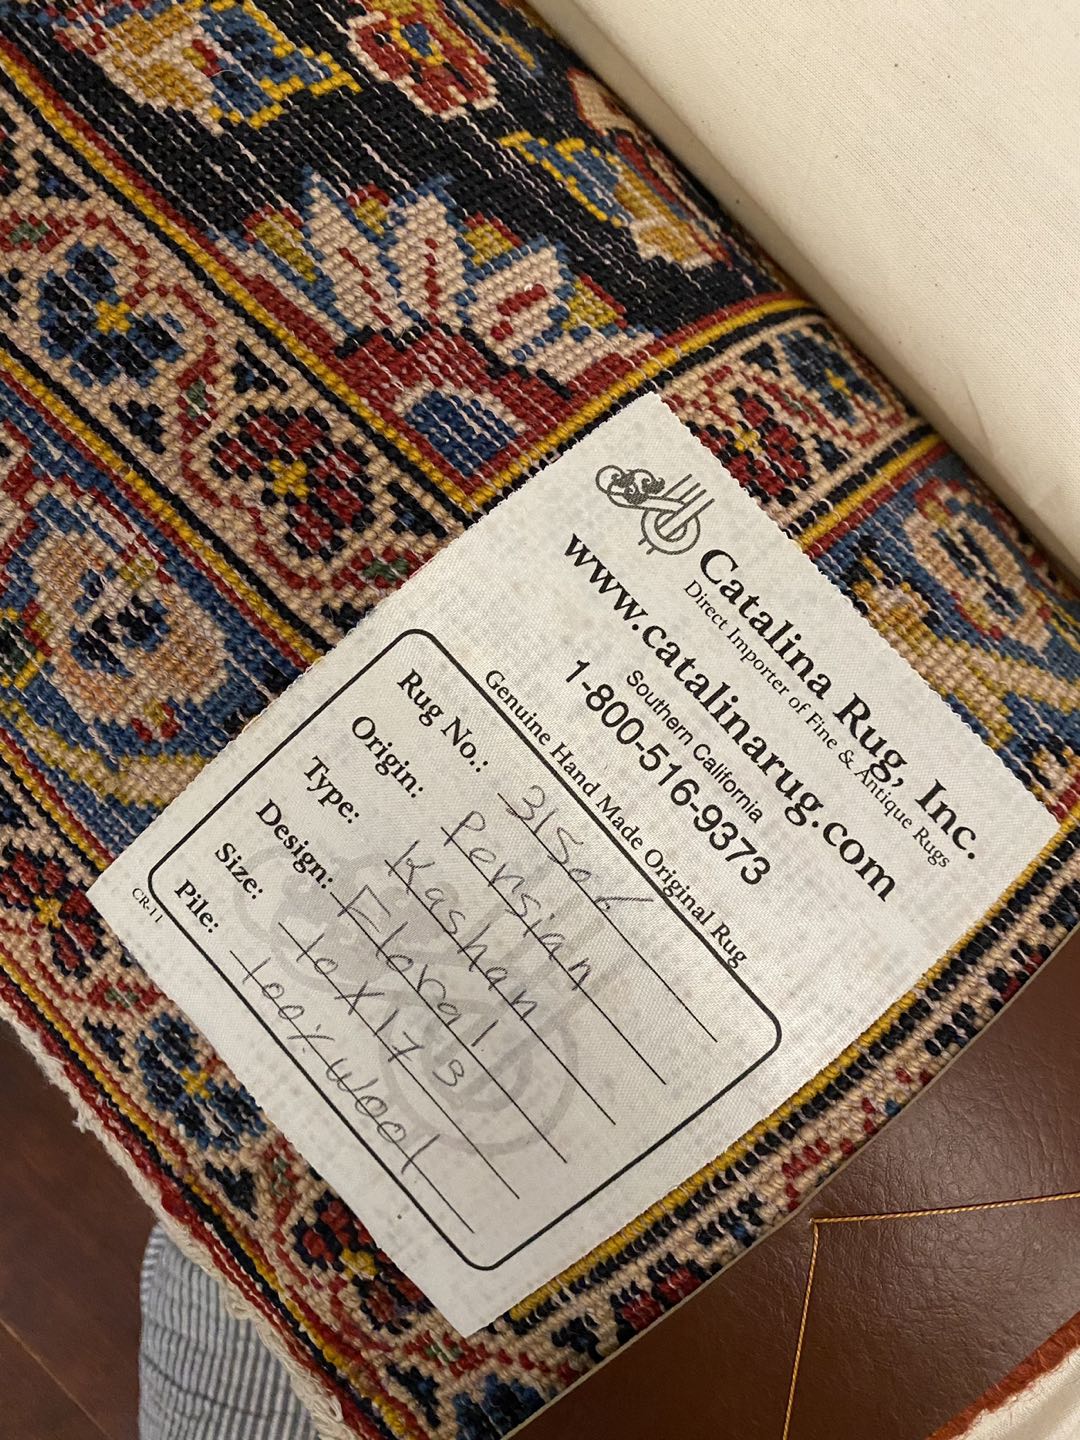 Catalina Rug, Inc.
Direct Importer of Fine & Antique Rugs
www.catalinarug.com
Southern California
1-800-516-9373
Genuine Hand Made Original Rug
Rug No.:
Origin: Persian
Type: Kashan
Design: Floral
Size: 10 X 17 3
Pile: 100% Wool
CR-11